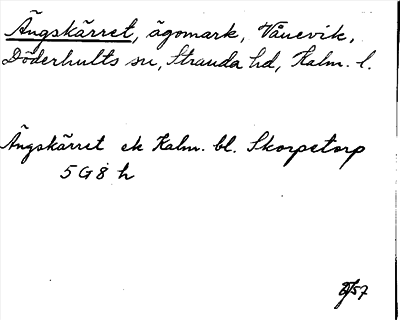 Ängskärret, ägomark, Vånevik,
Döderhults sn, Stranda hd, Kalm. l.
Ängskärret ek Kalm. bl. Skorpetorp
5 G 8 h